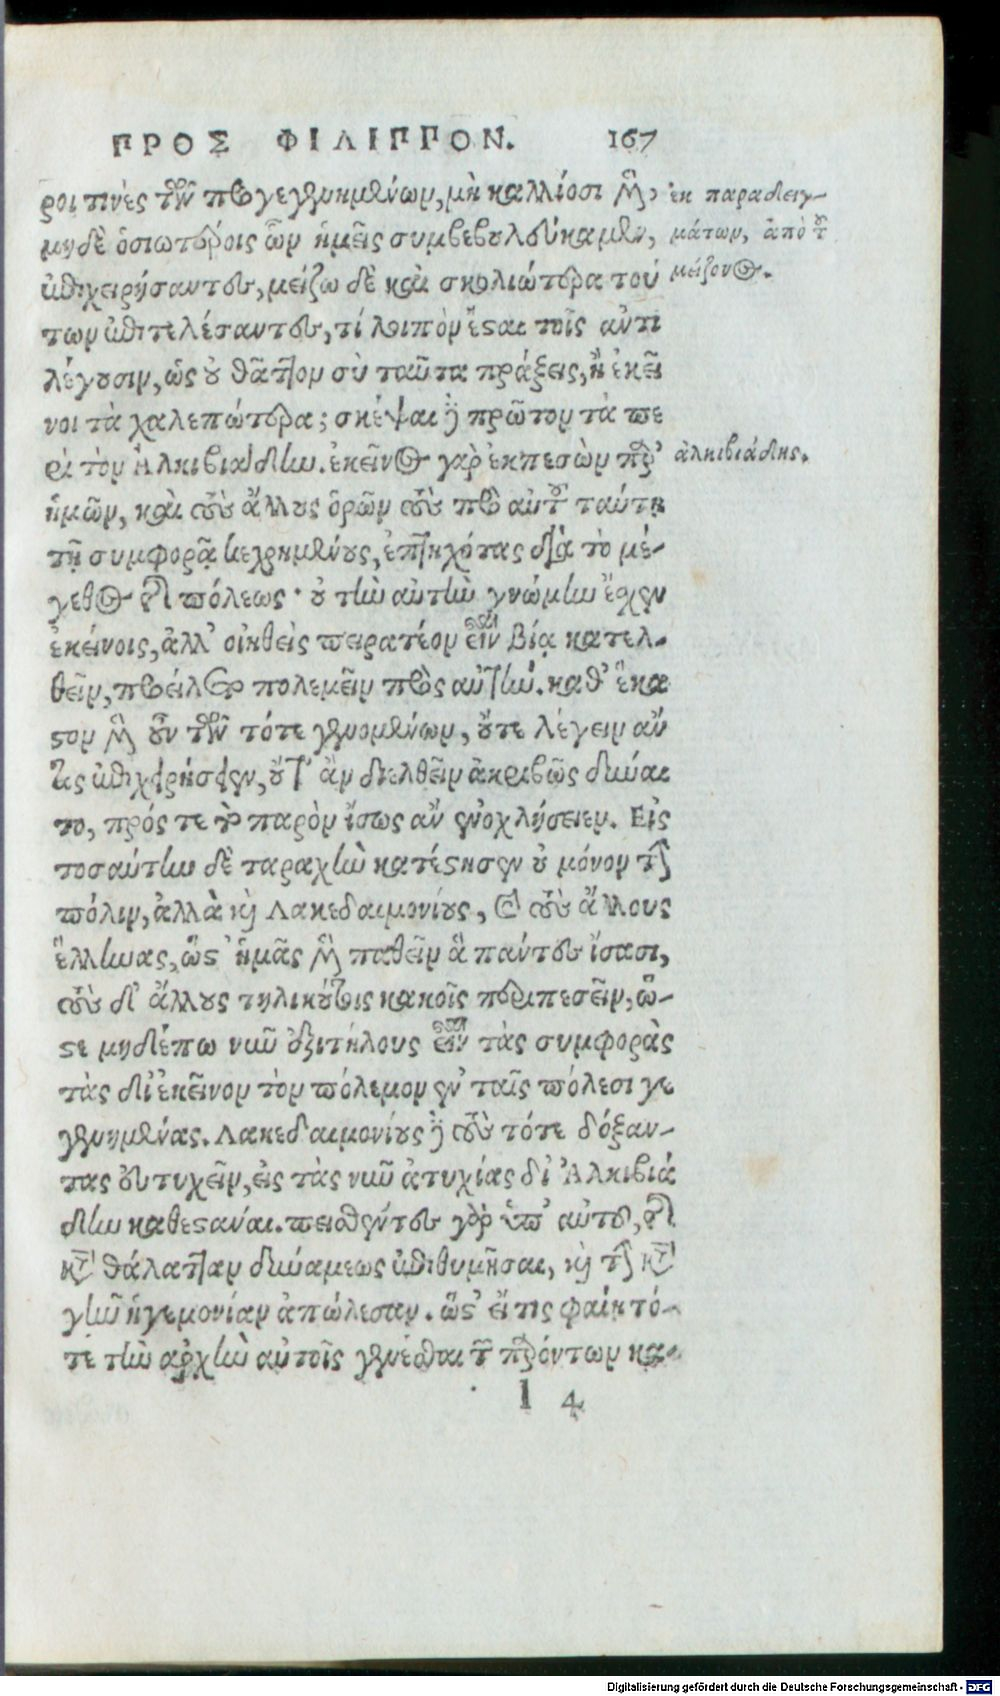 ΠΡΟΣ ΦΙΛΙΠΠΟΝ. 167
ροι τινὲς τῶν προγεγενημένων, μὴ καλλίοσι μὲν,
μηδὲ ὁσιωτέροις ὧν ἡμεῖς συμβεβουλεύκαμεν,
ἐπιχειρήσαντες, μείζω δὲ καὶ σκολιώτερα τού
των ἐπιτελέσαντες, τί λοιπὸν ἔσαι τοῖς ἀντι
λέγουσιν, ὡς οὐ θᾶττον σὺ ταῦτα πράξεις, ἢ ἐκεῖ
νοι τὰ χαλεπώτερα; σκέψαι δὲ πρῶτον τὰ πε
ρὶ τὸν Ἀλκιβιάδην. ἐκεῖνος γὰρ ἐκπεσὼν παρ'
ἡμῶν, καὶ τοὺς ἄλλους ὁρῶν τοὺς πρὸ αὐτοῦ ταύτῃ
τῇ συμφορᾷ κεχρημένους, ἐπτηχότας διὰ τὸ μέ-
γεθος τῆς πόλεως· οὐ τὴν αὐτὴν γνώμην ἔσχεν
ἐκείνοις, ἀλλ' οἰηθεὶς πειρατέον εἶναι βίᾳ κατελ-
θεῖν, προείλετο πολεμεῖν πρὸς αὐτήν. καθ' ἕκα
στον μὲν οὖν τῶν τότε γενομένων, οὔτε λέγειν ἄν
τις ἐπιχειρήσειεν, οὔτ' ἂν διελθεῖν ἀκριβῶς δύναι
το, πρός τε τὸ παρὸν ἴσως ἂν ἐνοχλήσειεν. Εἰς
τοσαύτην δὲ ταραχὴν κατέστησεν οὐ μόνον τὴν
πόλιν, ἀλλὰ καὶ Λακεδαιμονίους, καὶ τοὺς ἄλλους
ἕλληνας, ὥσθ' ἡμᾶς μὲν παθεῖν ἃ πάντες ἴσασι,
τοὺς δ' ἄλλους τηλικούτοις κακοῖς περιπεσεῖν, ὥ-
στε μηδέπω νῦν ἐξιτήλους εἶναι τὰς συμφορὰς
τὰς δι' ἐκεῖνον τὸν πόλεμον ἐν ταῖς πόλεσι γε
γενημένας. Λακεδαιμονίους δὲ τοὺς τότε δόξαν-
τας εὐτυχεῖν, εἰς τὰς νῦν ἀτυχίας δι' Ἀλκιβιά
δην καθεστάναι. πεισθέντες γὰρ ὑπ' αὐτοῦ, τῆς
κατὰ θάλατταν δυνάμεως ἐπιθυμῆσαι, καὶ τὴν κατὰ
γῆν ἡγεμονίαν ἀπώλεσαν. ὥστ' εἴ τις φαίη τό-
τε τὴν ἀρχὴν αὐτοῖς γενέσθαι τῶν παρόντων κα-
l 4
ἐκ παραδειγ-
μάτων, ἀπὸ τοῦ
μείζονος.
ἀλκιβιάδης.
Digitalisierung gefördert durch die Deutsche Forschungsgemeinschaft - DFG